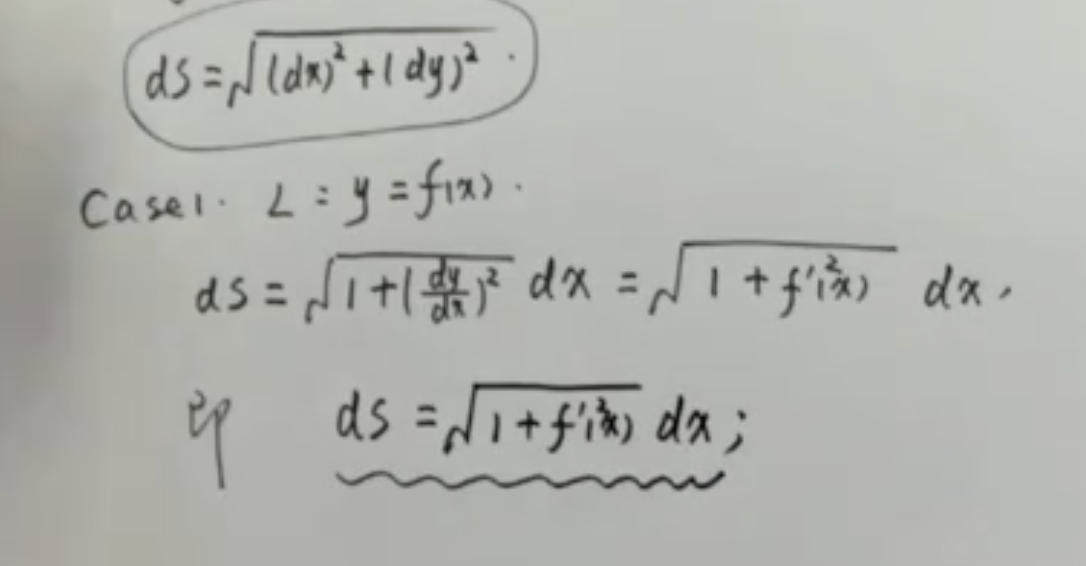 ds = √((dx)² + (dy)²) .
Case1. L : y = f(x) .
ds = √(1 + (dy/dx)²) dx = √(1 + f'²(x)) dx .
即 ds = √(1 + f'²(x)) dx ;